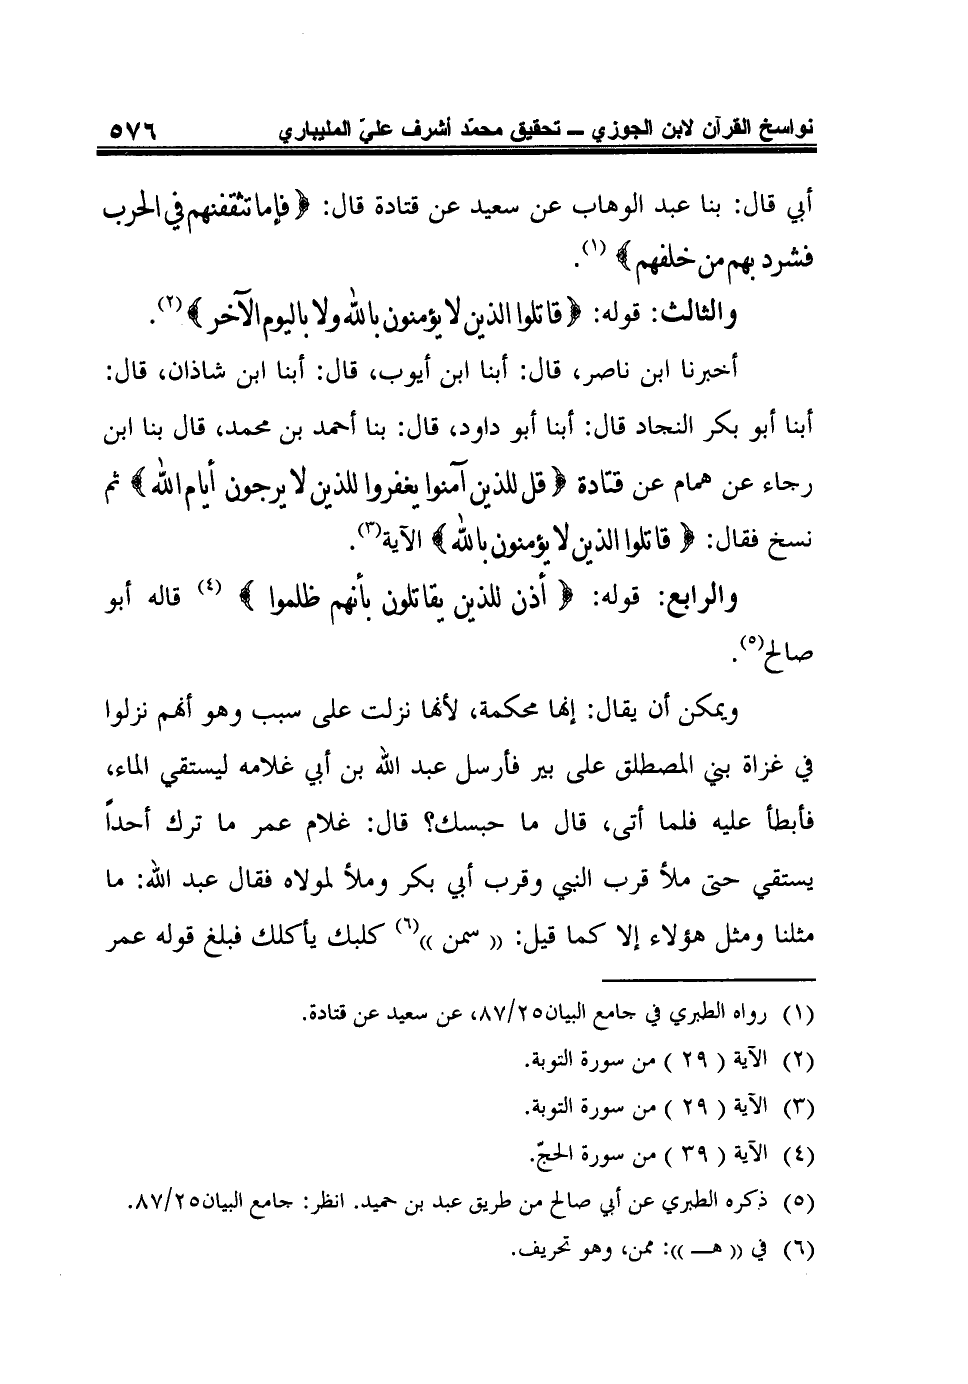 نواسخ القرآن لابن الجوزي ــ تحقيق محمّد أشرف عليّ المليباري ٥٧٦
أبي قال: بنا عبد الوهاب عن سعيد عن قتادة قال: ﴿ فإما تثقفنهم في الحرب
فشرد بهم من خلفهم ﴾ (١).
والثالث: قوله: ﴿ قاتلوا الذين لا يؤمنون بالله ولا باليوم الآخر ﴾(٢).
أخبرنا ابن ناصر، قال: أبنا ابن أيوب، قال: أبنا ابن شاذان، قال:
أبنا أبو بكر النجاد قال: أبنا أبو داود، قال: بنا أحمد بن محمد، قال بنا ابن
رجاء عن همام عن قتادة ﴿ قل للذين آمنوا يغفروا للذين لا يرجون أيام الله ﴾ ثم
نسخ فقال: ﴿ قاتلوا الذين لا يؤمنون بالله ﴾ الآية(٣).
والرابع: قوله: ﴿ أذن للذين يقاتلون بأنهم ظلموا ﴾ (٤) قاله أبو
صالح(٥).
ويمكن أن يقال: إنها محكمة، لأنها نزلت على سبب وهو أنهم نزلوا
في غزاة بني المصطلق على بير فأرسل عبد الله بن أبي غلامه ليستقي الماء،
فأبطأ عليه فلما أتى، قال ما حبسك؟ قال: غلام عمر ما ترك أحداً
يستقي حتى ملأ قرب النبي وقرب أبي بكر وملأ لمولاه فقال عبد الله: ما
مثلنا ومثل هؤلاء إلا كما قيل: (( سمن ))(٦) كلبك يأكلك فبلغ قوله عمر
(١) رواه الطبري في جامع البيان٨٧/٢٥، عن سعيد عن قتادة.
(٢) الآية ( ٢٩ ) من سورة التوبة.
(٣) الآية ( ٢٩ ) من سورة التوبة.
(٤) الآية ( ٣٩ ) من سورة الحجّ.
(٥) ذكره الطبري عن أبي صالح من طريق عبد بن حميد. انظر: جامع البيان٨٧/٢٥.
(٦) في (( هــ )): ممن، وهو تحريف.